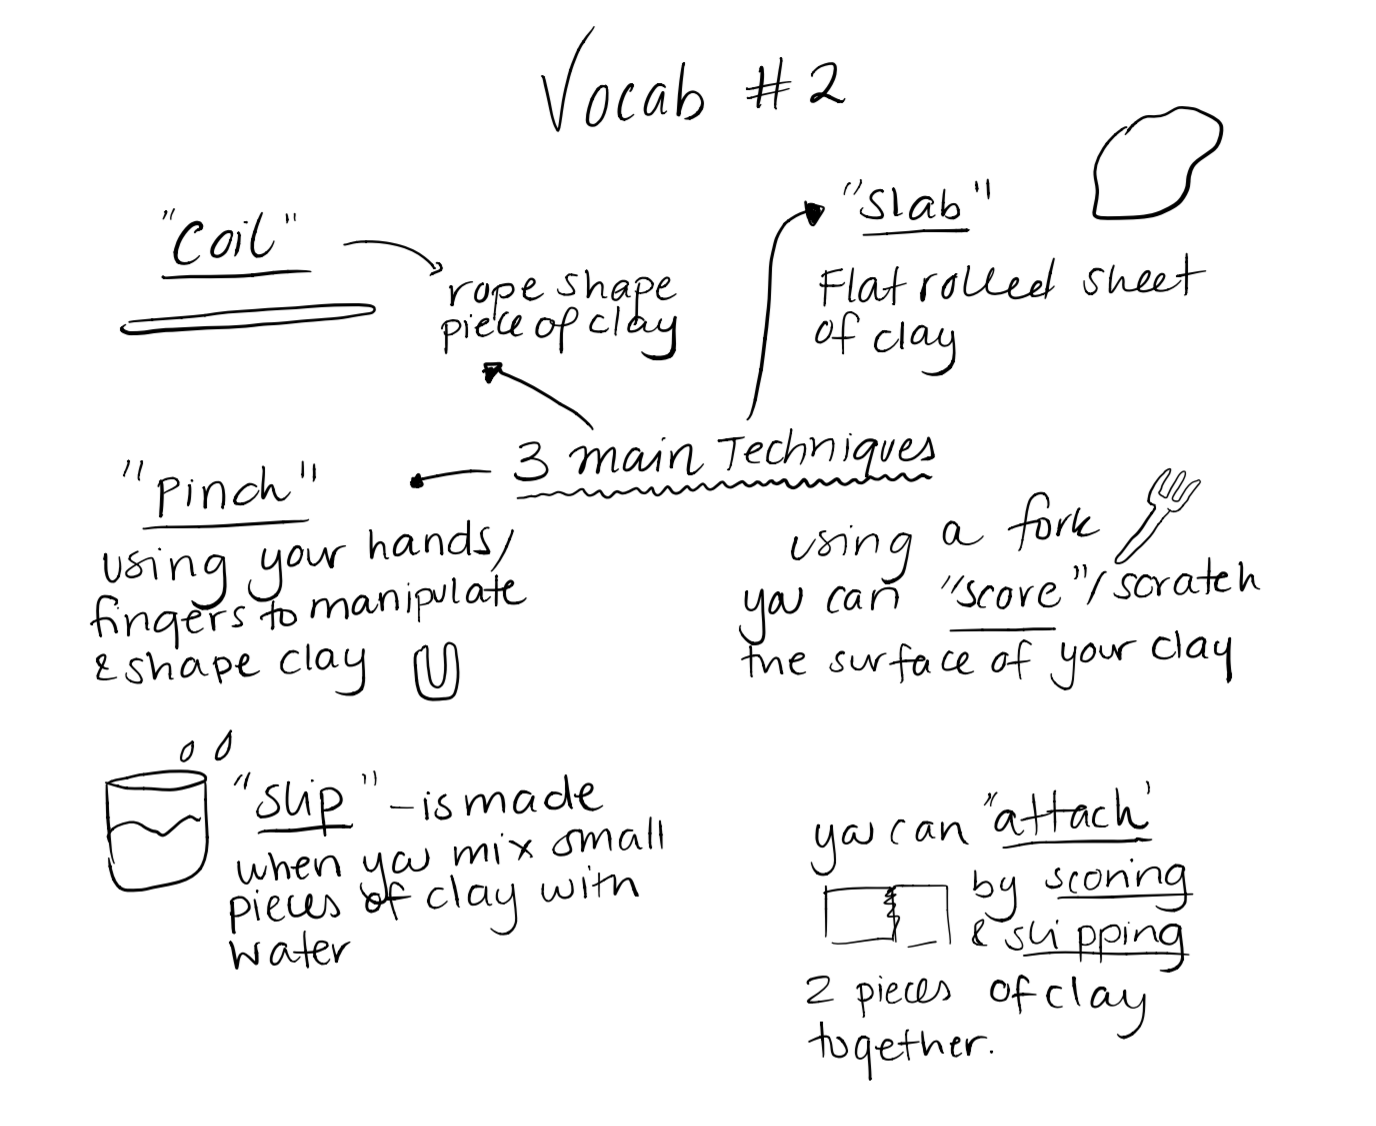 Vocab #2
"Coil"
rope shape
piece of clay
"Slab"
Flat rolled sheet
of clay
3 main Techniques
"Pinch"
using your hands/
fingers to manipulate
& shape clay
using a fork
you can "score"/scratch
the surface of your clay
"Slip" - is made
when you mix small
pieces of clay with
water
you can "attach'
by scoring
& slipping
2 pieces of clay
together.